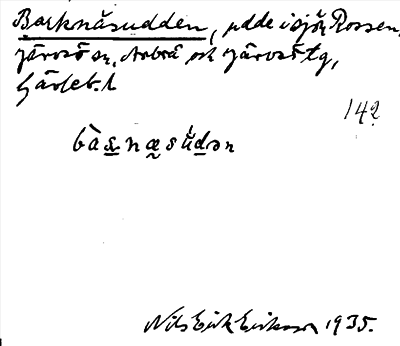 Barknäsudden, udde i sjön Rossen,
Järvsö sn, Arbrå och Järvsö tg,
Gävleb. l
142
bàs̲næsúd̲ən
Nils Erik Eriksson 1935.